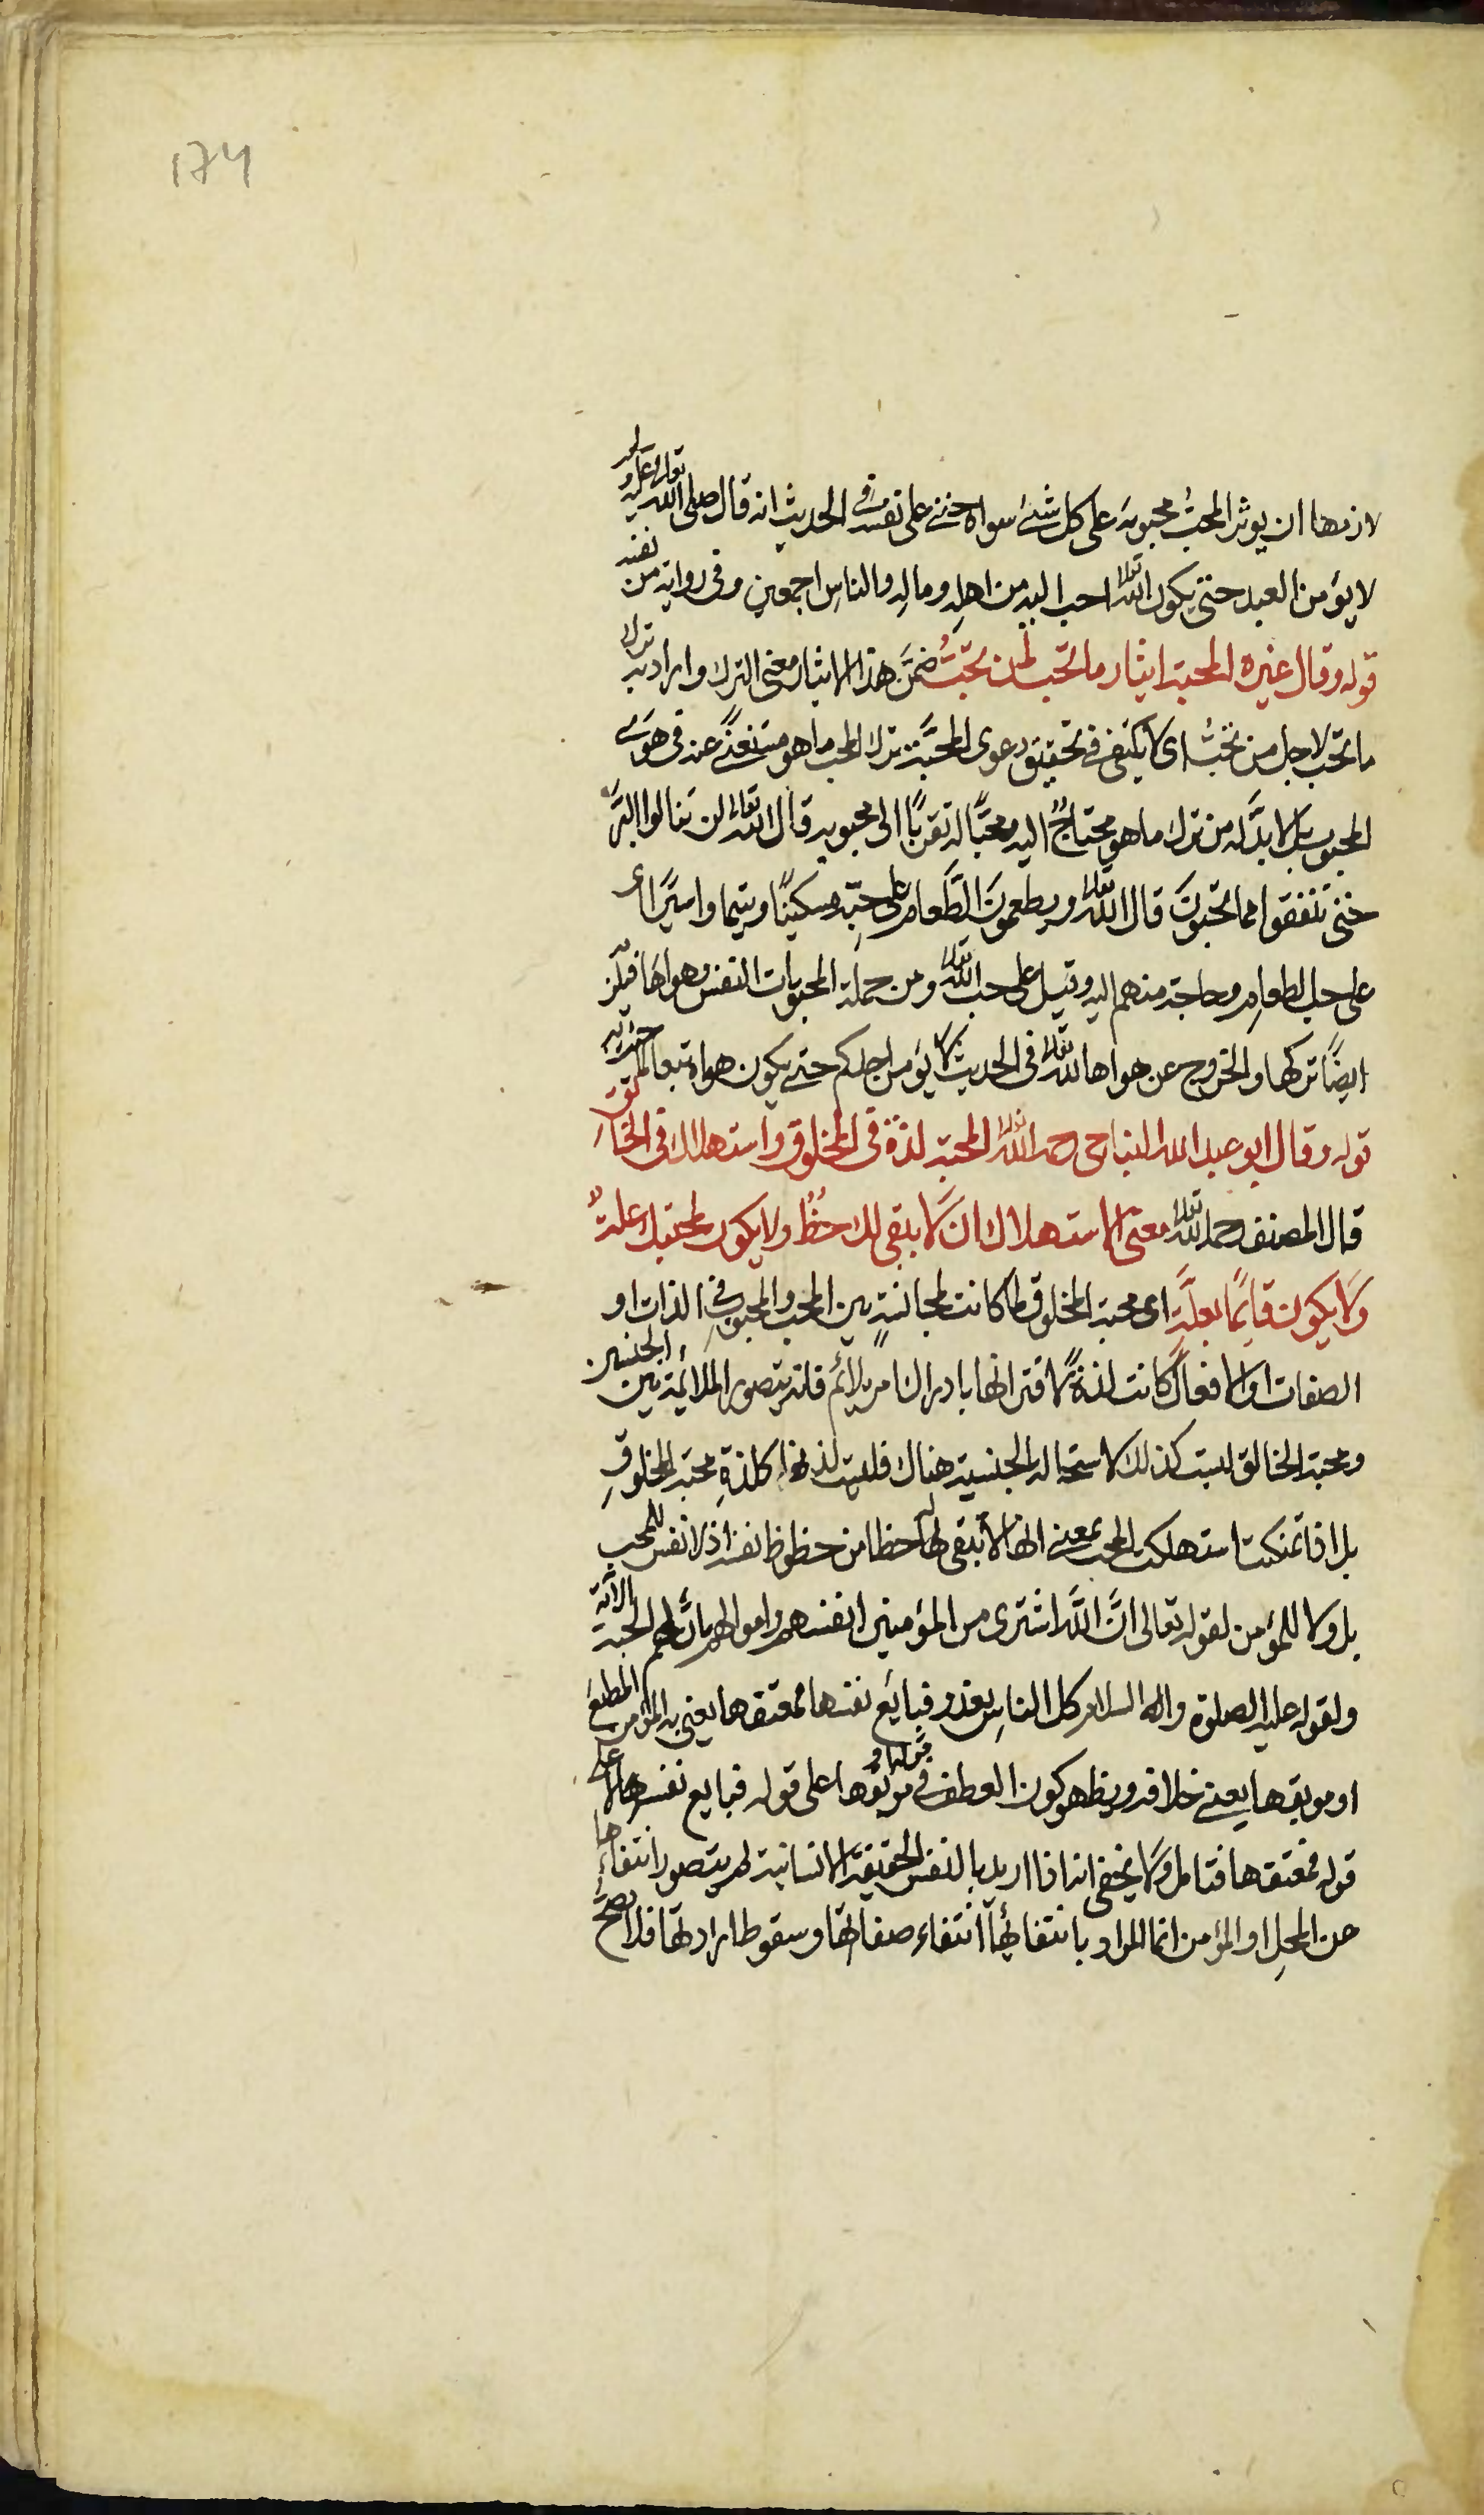 174
لازمها ان يوثر المحبُّ محبوبَه على كل شئ سواه حتى على نفسه وفى الحديث انه قال صلى الله تعالى عليه وسلم
لا يؤمن العبد حتى يكون الله تعالى احب اليه من اهلِه ومالِه والناسِ اجمعين وفى رواية من نفسه
قوله وقال غيره المحبة ايثار ما تحب لمن تحبُّ ضمَّن هذا الايثار معنى الترك واراد به ترك
ما تحب لاجل من تحبُّ اى لا يكتفى فى تحقيق دعوى المحبَّة ترك المحب ما هو مستغنًى عنه فى هوى
المحبوب بل لا بدَّ له من ترك ما هو محتاجٌ اليه ومحبًّا له تقربًا الى محبوبه قال الله تعالى لن تنالوا البرَّ
حتى تنفقوا مما تحبونَ قال الله تعالى ويطعمونَ الطَّعام على حبّه مسكينًا ويتيما واسيرًا اى
على حب الطعامِ وحاجة منهم اليه وقيل على حب الله تعالى ومن جملة المحبوبات النفس وهواها فيلزمه
ايضًا تركها والخروج عن هواها لله تعالى فى الحديث لا يؤمن احدكم حتى يكون هواه تبعا لما جئت به
قوله وقال ابو عبد الله النباحى رحمه الله تعالى المحبة لذة فى المخلوق واستهلاك فى الخالق
قال المصنف رحمه الله تعالى معنى الاستهلاك ان لا يبقى لك حظٌّ ولا يكون لمحبتك علةٌ
ولا يكون قايمًا بعلَّةٍ اى محبة المخلوق لما كانت لمجانسةٍ بين المحب والمحبوبِ فى الذات او
الصفات او الافعال كانت لذةً لاقترانها بادراك امر يلائم فانه يتصور الملائمة بين الجنسين
ومحبة الخالق ليست كذلك لاستحالة الجنسية هناك فليست لذتها كلذةِ محبة المخلوقِ
بل اذا تمكنت استهلكت المحب بمعنى انها لا تبقى له حظا من حظوظ نفسه اذ لا نفس للمحب
بل ولا للمؤمن لقوله تعالى انَّ اللَّه اشترى من المؤمنين انفسهم واموالهم بانَّ لهم الجنة الآية
ولقوله عليه الصلوة والسلام كل الناسِ يغدو فبايع نفسها فمعتقها يعنى به المؤمن المطيع
او موبقها يعنى خلافه ويظهر كون العطف فى موبقها على قوله فبايع نفسها لا على
قوله فمعتقها فتامل ولا يخفى انه اذا اريد بالنفس الحقيقة الانسانية لم يتصور انتفاءُها
عن المحبِ او المؤمن انما المراد بانتفائها انتفاء صفاتها وسقوط ارادتها فلا يصحّ